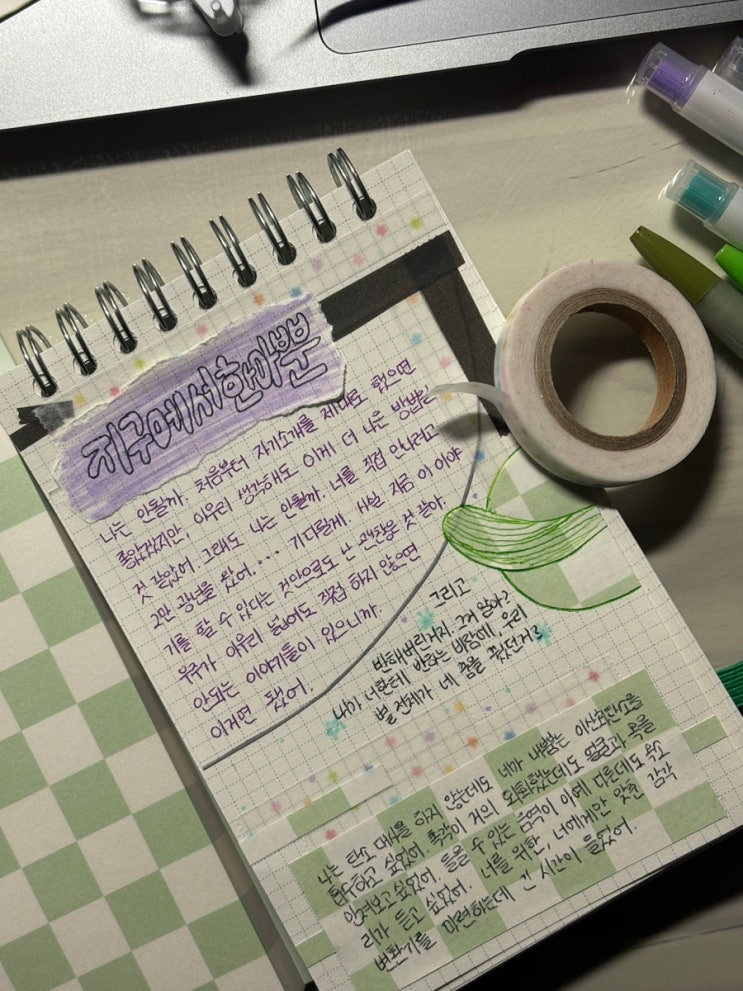 지구에서한아뿐
나는 안될까. 처음부터 자기소개를 제대로 했으면
좋았겠지만, 아무리 생각해도 이게 더 나은 방법일
것 같았어. 그래도 나는 안될까. 너를 직접 만나려고
2만 광년을 왔어.... 기다릴게. 사실 지금 이 이야
기를 할 수 있다는 것만으로도 난 괜찮은 것 같아.
우주가 아무리 넓어도 직접 하지 않으면
안되는 이야기들이 있으니까.
이거면 됐어.
그리고
반해버린거지. 그거 알아?
내가 너한테 반하는 바람에, 우리
별 전체가 네 꿈을 꿨던거?
나는 탄소 대사를 하지 않는데도 네가 내뿜는 이산화탄소를
흡수하고 싶었어. 촉각이 거의 퇴화했는데도 얼굴과 목을
만져보고 싶었어. 들을 수 있는 음역이 아예 다른데도 목소
리가 듣고 싶었어. 너를 위한, 너에게만 맞춘 감각
변환기를 마련하는데 긴 시간이 들었어.